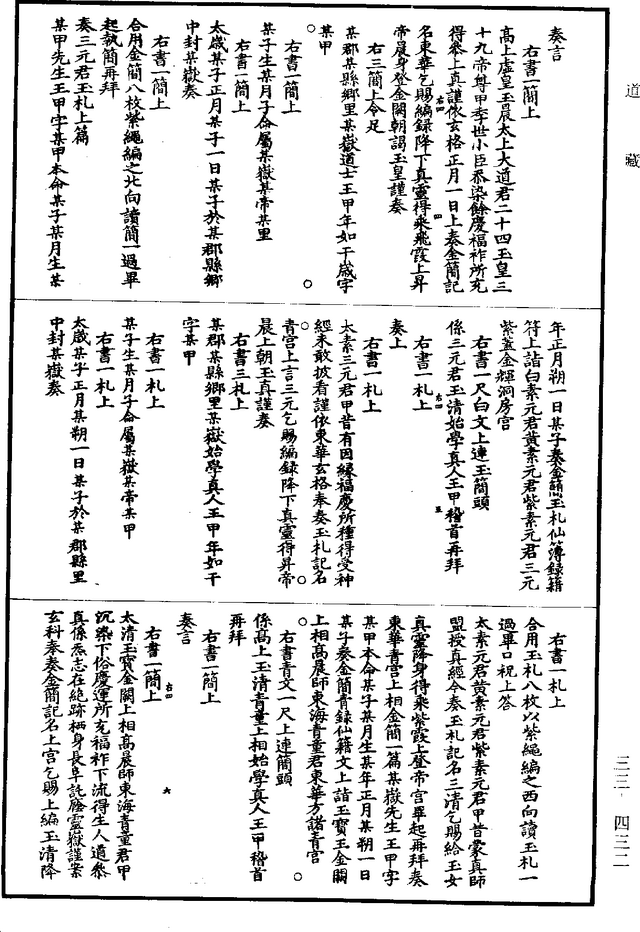 道藏
奏言
右書一簡上
高上虛皇玉晨太上大道君二十四玉皇三
十九帝尊甲季世小臣忝染餘慶福祚所充
得參上真謹依玄格正月一日上奏金簡記
名東華乞賜編録降下真靈得乘飛霞上昇
帝晨身登金闕朝謁玉皇謹奏
右三簡上令足
某郡某縣鄉里某嶽道士王甲年如干歲字
某甲
右書一簡上
某子生某月子命屬某嶽某帝某里
右書一簡上
太歲某子正月某子一日某子於某郡縣鄉
中封某嶽奏
右書一簡上
合用金簡八枚紫繩編之北向讀簡一過畢
起執簡再拜
奏三元君玉札上篇
某甲先生王甲字某甲本命某子某月生某
年正月朔一日某子奏金簡玉札仙簿録籍
符上詣白素元君黃素元君紫素元君三元
紫蓋金輝洞房宮
右書一尺白文上連玉簡頭
係三元君玉清始學真人王甲稽首再拜
右書一札上
奏上
右書一札上
太素三元君甲昔有因緣福慶所種得受神
經未敢披看謹依東華玄格奉奏玉札記名
青宮上言三元乞賜編録降下真靈得昇帝
晨上朝玉真謹奏
右書三札上
某郡某縣鄉里某嶽始學真人王甲年如干
字某甲
右書一札上
某子生某月子命屬某嶽某帝某甲
右書一札上
太歲某子正月某朔一日某子於某郡縣里
中封某嶽奏
右書一札上
合用玉札八枚以紫繩編之西向讀玉札一
過畢口祝上答
太素元君黃素元君紫素元君甲昔蒙真師
盟授真經今奏玉札記名三清乞賜給玉女
真靈降身得乘紫霞上登帝宮畢起再拜奏
東華青宮上相金簡一篇某嶽先生王甲字
某甲本命某子某月生某年正月某朔一日
某子奏金簡青録仙籍文上詣玉寶王金闕
上相高晨師東海青童君東華方諸青宮
右書青文一尺上連簡頭
係高上玉清青童上相始學真人王甲稽首
再拜
右書一簡上
奏言
右書一簡上
太清玉寶金闕上相高晨師東海青童君甲
沉染下俗慶運所充福祚下流得生人道叅
真係炁志在絶跡栖身長阜託廕靈嶽謹案
玄科奉奏金簡記名上宮乞賜上編玉清降
三三-四三二